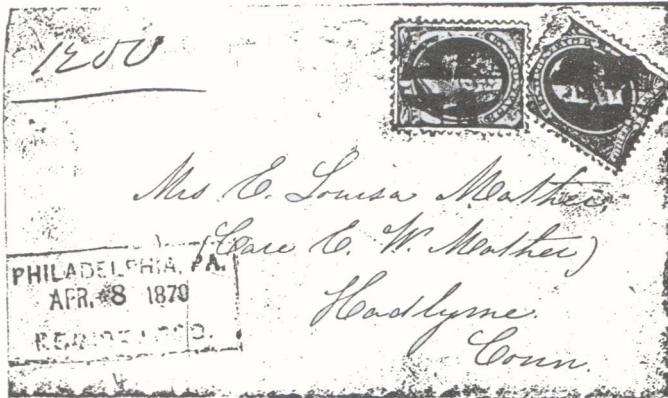 1200
Mrs E. Louisa Mather,
(Care E. W. Mather)
Hadlyme.
Conn.
PHILADELPHIA, PA.
APR. 8 1879